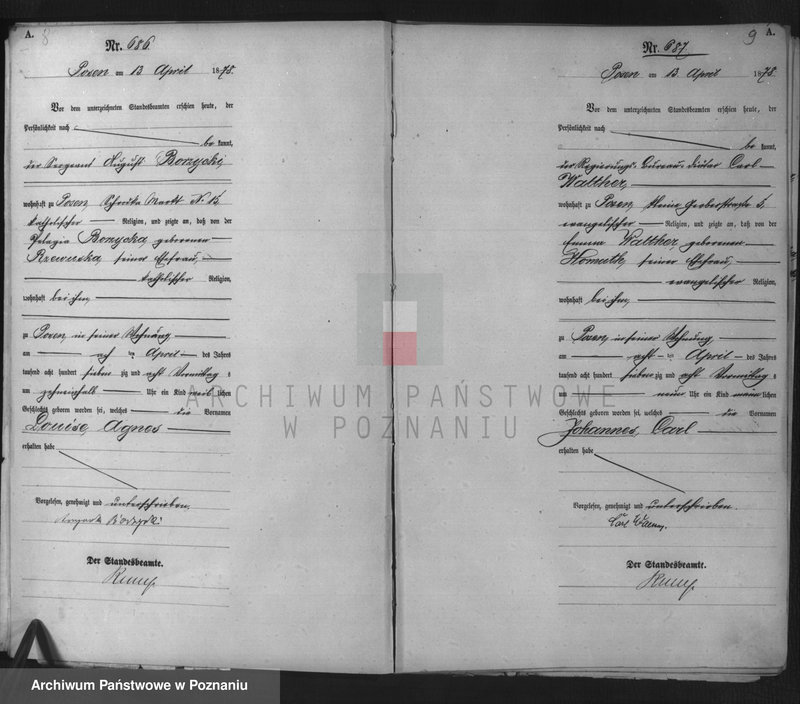 A.
8
Nr. 686
Posen am 13 April 1878.
Vor dem unterzeichneten Standesbeamten erschien heute, der
Persönlichkeit nach
bekannt,
der Sergeant August Borzycki,
wohnhaft zu Posen, Schrodka Markt N. 15
katholischer Religion, und zeigte an, daß von der
Pelagia Borzycka geborenen
Rzewuska, seiner Ehefrau,
katholischer Religion,
wohnhaft bei ihm,
zu Posen, in seiner Wohnung
am acht ten April des Jahres
tausend acht hundert sieben zig und acht Vormittag s
um zehneinhalb Uhr ein Kind weib lichen
Geschlechts geboren worden sei, welches die Vornamen
Louise, Agnes
erhalten habe
Vorgelesen, genehmigt und unterschrieben.
August Borzycki
Der Standesbeamte.
9
A.
Nr. 687
Posen am 13 April 1878
Vor dem unterzeichneten Standesbeamten erschien heute, der
Persönlichkeit nach
bekannt,
der Regierungs-Bureau-Diätar Carl
Walther,
wohnhaft zu Posen, kleine Gerberstraße 5,
evangelischer Religion, und zeigte an, daß von der
Emma Walther, geborenen
Homuth, seiner Ehefrau,
evangelischer Religion,
wohnhaft bei ihm,
zu Posen, in seiner Wohnung
am acht ten April des Jahres
tausend acht hundert sieben zig und acht Vormittag s
um neun Uhr ein Kind männ lichen
Geschlechts geboren worden sei, welches die Vornamen
Johannes, Carl
erhalten habe
Vorgelesen, genehmigt und unterschrieben.
Carl
Der Standesbeamte.
ARCHIWUM PAŃSTWOWE
W POZNANIU
Archiwum Państwowe w Poznaniu